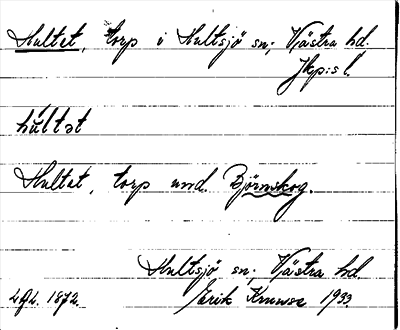 Hultet, torp i Hultsjö sn; Västra hd.
Jkp:s l.
húltət
Hultet, torp und. Björnskog.
Hultsjö sn; Västra hd.
1872. Erik Kruuse 1933.